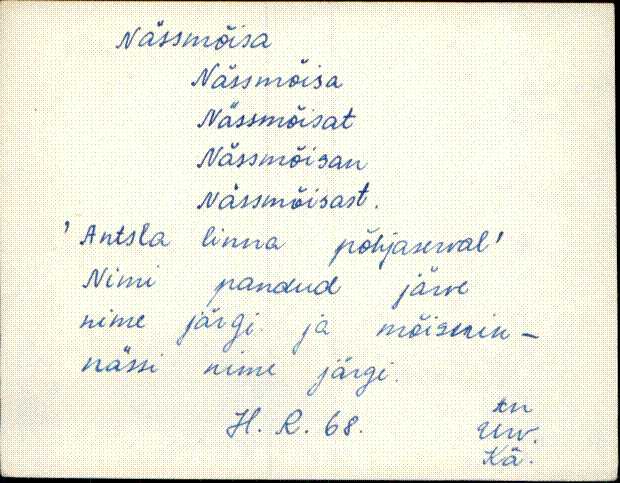 Nässmõisa
Nässmõisa
Nässmõisat
Nässmõisan
Nässmõisast.
'Antsla linna põhjaserval'
Nimi pandud järve
nime järgi ja
nässi nime järgi.
H. R. 68.
Urv.
Kä.